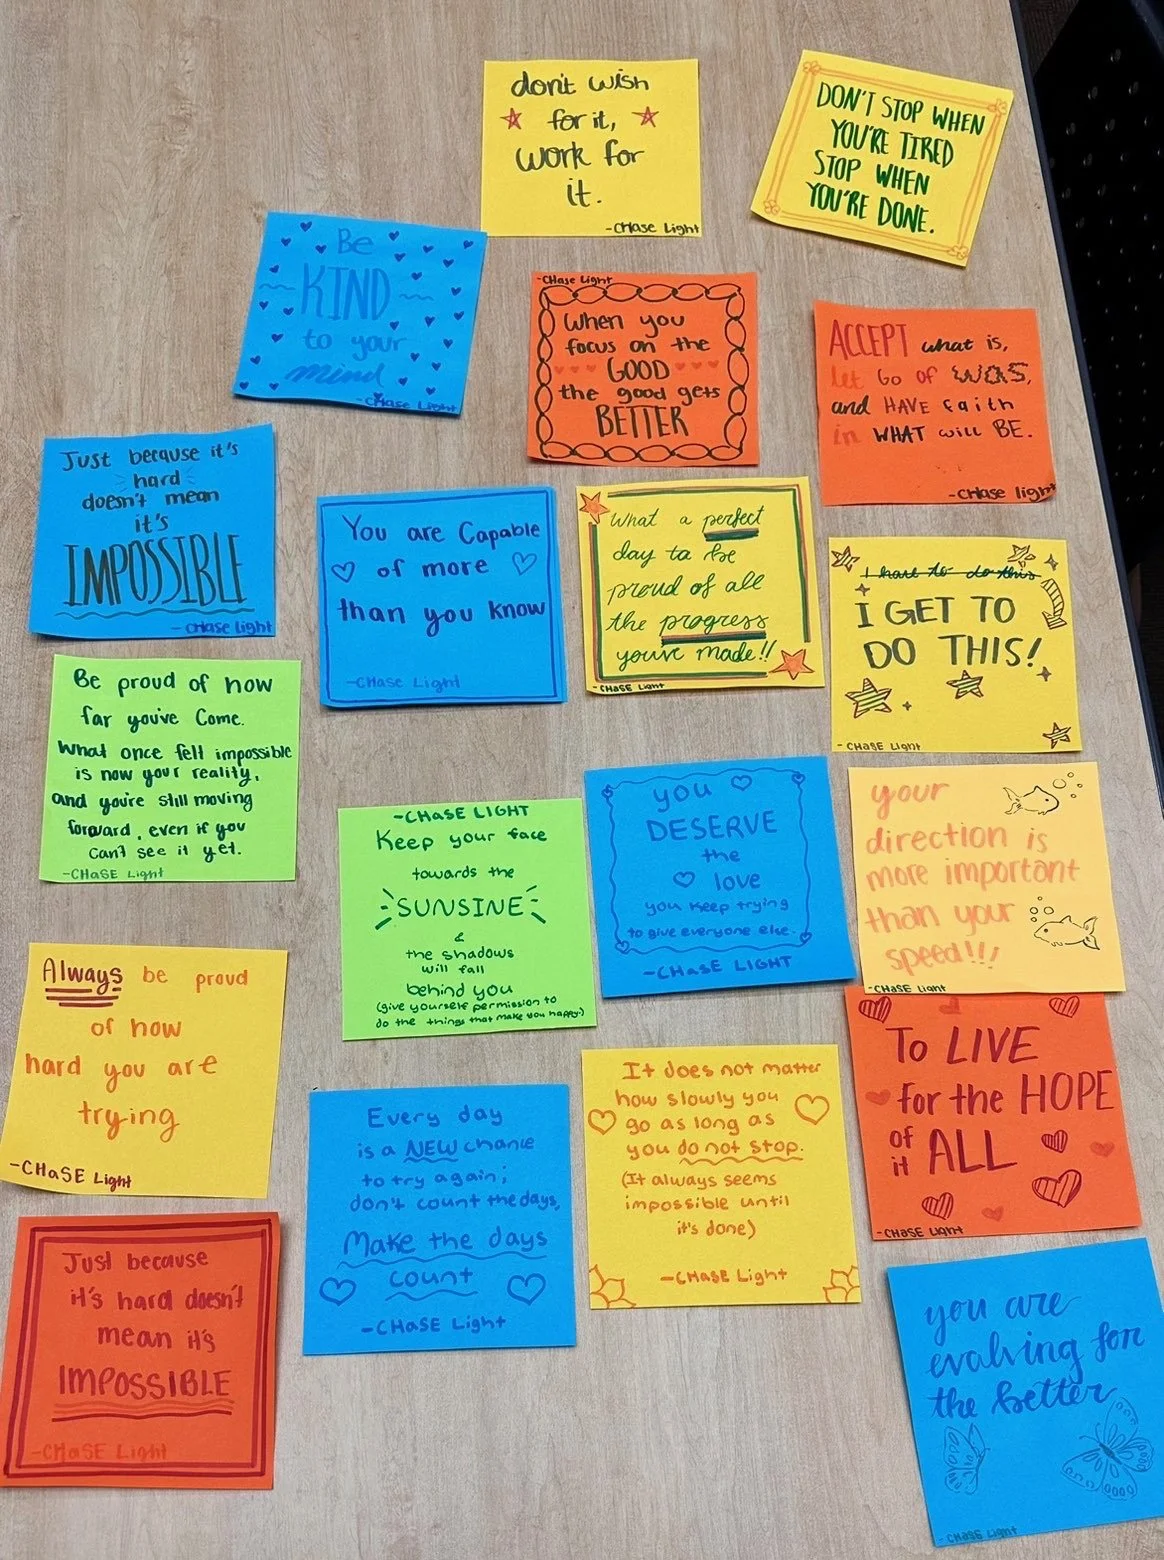 don't wish
for it,
work for
it.
-CHase Light
DON'T STOP WHEN
YOU'RE TIRED
STOP WHEN
YOU'RE DONE.
Be
KIND
to your
mind
-CHase Light
-CHase Light
When you
focus on the
GOOD
the good gets
BETTER
ACCEPT what is,
let Go OF WAS,
and HAVE faith
in WHAT will BE.
-CHase light
Just because it's
hard
doesn't mean
it's
IMPOSSIBLE
-CHase light
You are Capable
of more
than you know
-CHase Light
What a perfect
day to be
proud of all
the progress
you've made!!
-CHASE Light
I have to do this
I GET TO
DO THIS!
-CHASE Light
Be proud of how
far you've Come.
What once felt impossible
is now your reality,
and you're still moving
forward, even if you
can't see it yet.
-CHASE Light
-CHASE LIGHT
Keep your face
towards the
SUNSINE
&
the shadows
will fall
behind you
(give yourself permission to
do the things that make you happy)
you
DESERVE
the
love
you keep trying
to give everyone else.
-CHASE LIGHT
your
direction is
more important
than your
speed!!!
-CHASE Light
Always be proud
of how
hard you are
trying
-CHASE Light
Every day
is a NEW chance
to try again;
don't count the days,
Make the days
count
-CHASE Light
It does not matter
how slowly you
go as long as
you do not stop.
(It always seems
impossible until
it's done)
-CHASE Light
To LIVE
for the HOPE
of
it ALL
-CHASE Light
Just because
it's hard doesn't
mean it's
IMPOSSIBLE
-CHASE Light
you are
evolving for
the better
-CHASE Light